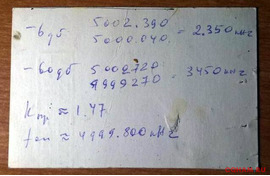 -6 дб. 5002.390
5000.040 = 2.350 кHz
-60 дб 5002720
4999270 = 3450 кHz
Kпр ≈ 1.47
fоп ≈ 4999.800 кHz